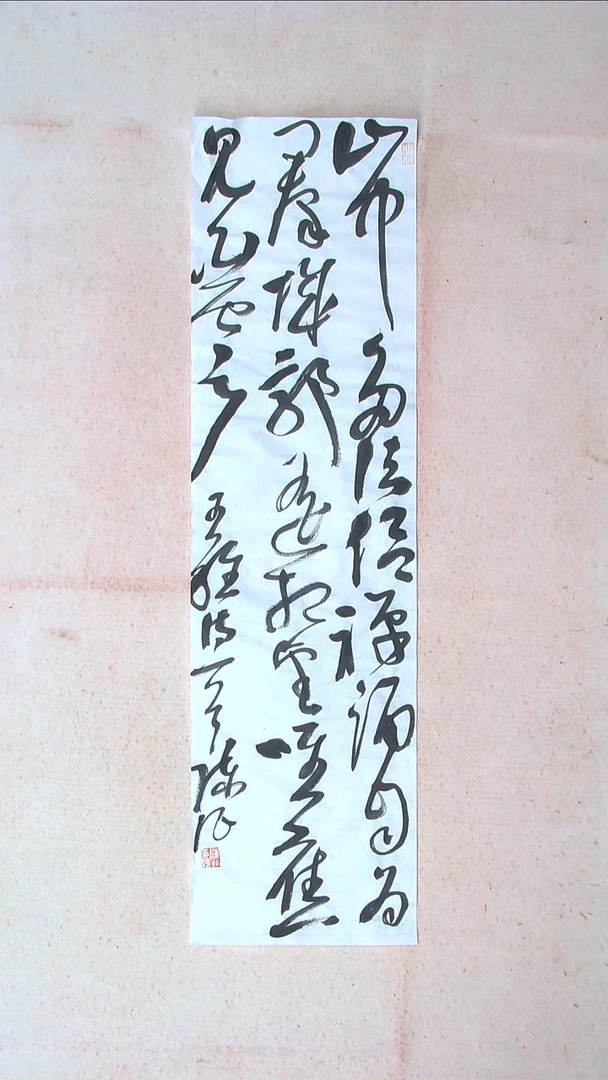 山中多法侶禪誦自為
羣城郭遙相望唯應
見白雲
王維詩一首